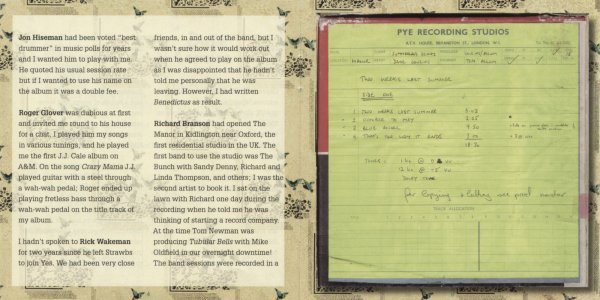 Jon Hiseman had been voted “best
drummer” in music polls for years
and I wanted him to play with me.
He quoted his usual session rate
but if I wanted to use his name on
the album it was a double fee.
Roger Glover was dubious at first
and invited me round to his house
for a chat. I played him my songs
in various tunings, and he played
me the first J.J. Cale album on
A&M. On the song Crazy Mama J.J.
played guitar with a steel through
a wah-wah pedal; Roger ended up
playing fretless bass through a
wah-wah pedal on the title track of
my album.
I hadn’t spoken to Rick Wakeman
for two years since he left Strawbs
to join Yes. We had been very close
friends, in and out of the band, but I
wasn’t sure how it would work out
when he agreed to play on the album
as I was disappointed that he hadn’t
told me personally that he was
leaving. However, I had written
Benedictus as result.
Richard Branson had opened The
Manor in Kidlington near Oxford, the
first residential studio in the UK. The
first band to use the studio was The
Bunch with Sandy Denny, Richard and
Linda Thompson, and others; I was the
second artist to book it. I sat on the
lawn with Richard one day during the
recording when he told me he was
thinking of starting a record company.
At the time Tom Newman was
producing Tubular Bells with Mike
Oldfield in our overnight downtime!
The band sessions were recorded in a
PYE RECORDING STUDIOS
A.T.V. HOUSE, BRYANSTON ST., LONDON, W.1.
TWO WEEKS LAST SUMMER
SIDE ONE
1 TWO WEEKS LAST SUMMER
2 OCTOBER TO MAY
3 BLUE ANGEL
4 THAT'S THE WAY IT ENDS
TONES
for copying & cutting see print master
TRACK ALLOCATION